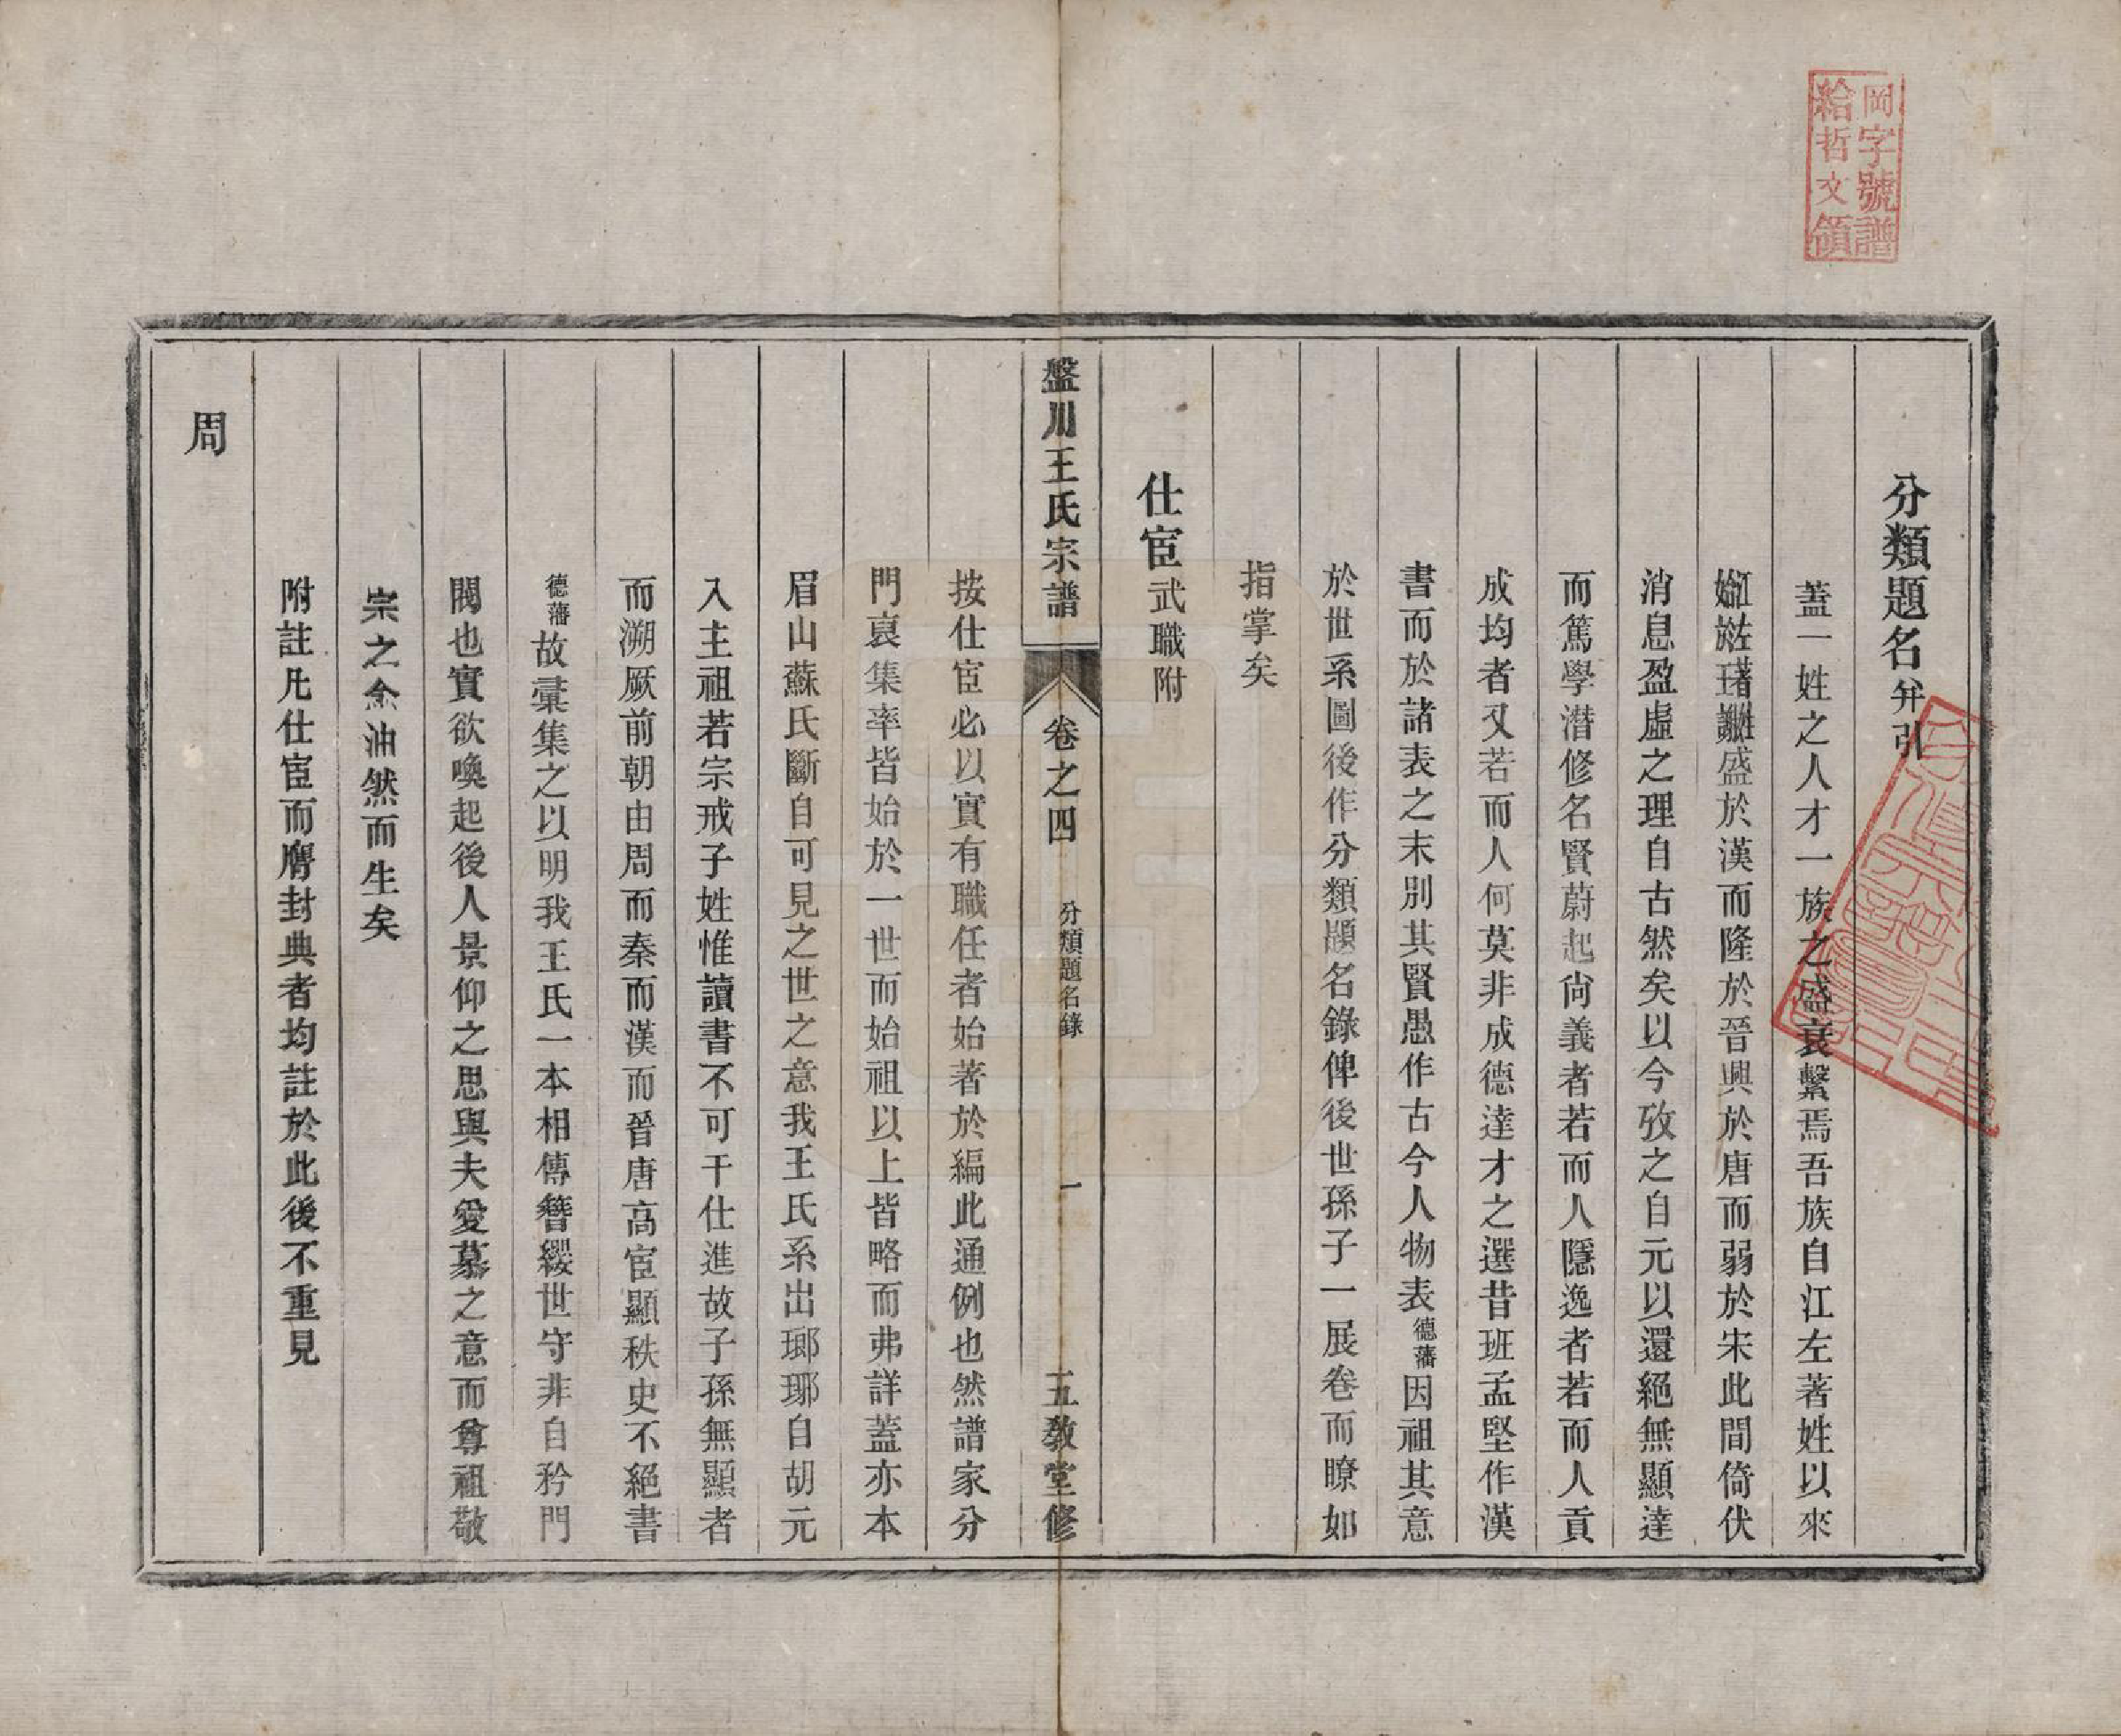 岡字號譜
給哲文領
分類題名弁引
蓋一姓之人才一族之盛衰繫焉吾族自江左著姓以來
盛於漢而隆於晉興於唐而弱於宋此間倚伏
消息盈虛之理自古然矣以今攷之自元以還絕無顯達
而篤學潛修名賢蔚起尚義者若而人隱逸者若而人貢
成均者又若而人何莫非成德達才之選昔班孟堅作漢
書而於諸表之末別其賢愚作古今人物表德藩因祖其意
於世系圖後作分類題名錄俾後世孫子一展卷而瞭如
指掌矣
仕宦武職附
盤川王氏宗譜 卷之四 分類題名錄 一 五教堂修
按仕宦必以實有職任者始著於編此通例也然譜家分
門裒集率皆始於一世而始祖以上皆略而弗詳蓋亦本
眉山蘇氏斷自可見之世之意我王氏系出瑯琊自胡元
入主祖若宗戒子姓惟讀書不可干仕進故子孫無顯者
而溯厥前朝由周而秦而漢而晉唐高宦顯秩史不絕書
德藩故彙集之以明我王氏一本相傳簪纓世守非自矜門
閥也實欲喚起後人景仰之思與夫愛慕之意而尊祖敬
宗之念油然而生矣
附註凡仕宦而膺封典者均註於此後不重見
周